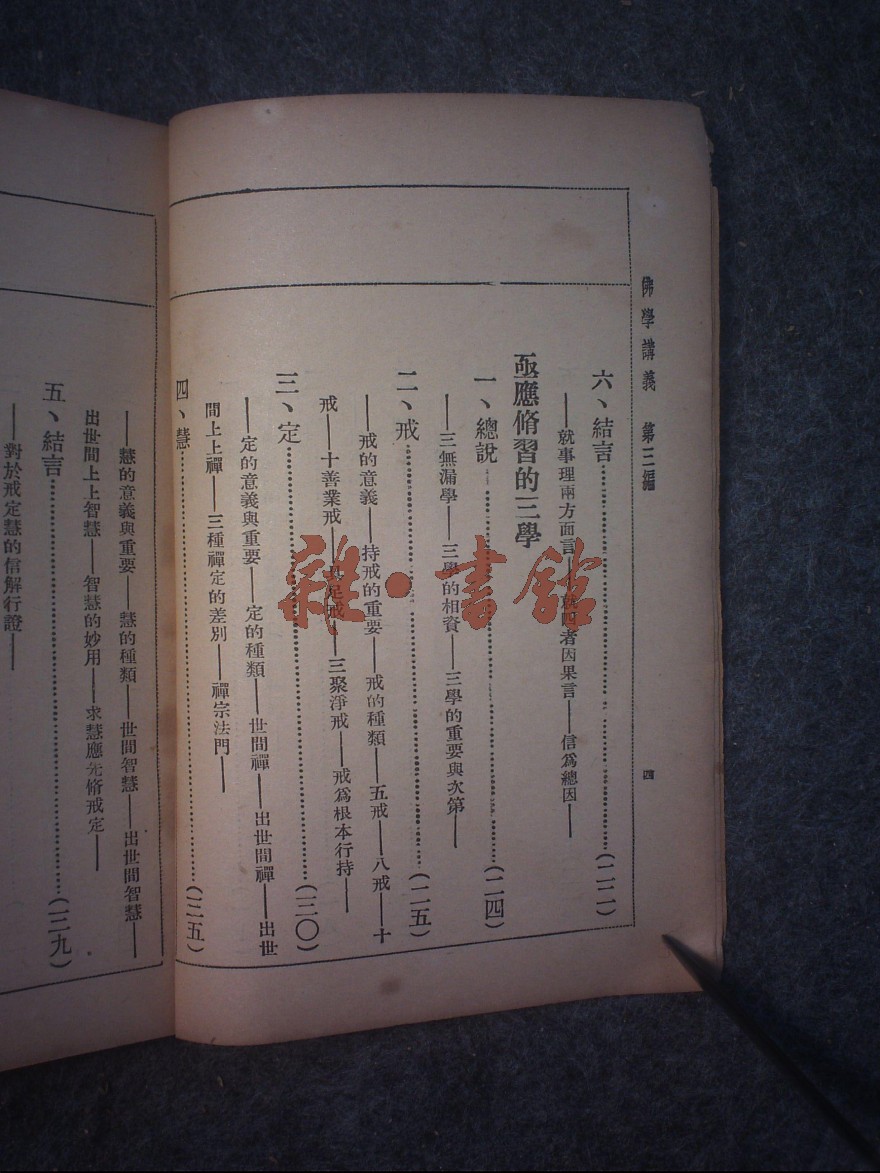 佛學講義　第三編
四
六、結言……(二二)
——就事理兩方面言——就四者因果言——信爲總因——
亟應脩習的三學
一、總說……(二四)
——三無漏學——三學的相資——三學的重要與次第——
二、戒……(二五)
——戒的意義——持戒的重要——戒的種類——五戒——八戒——十
戒——十善業戒——具足戒——三聚淨戒——戒爲根本行持——
三、定……(三〇)
——定的意義與重要——定的種類——世間禪——出世間禪——出世
間上上禪——三種禪定的差別——禪宗法門——
四、慧……(三五)
——慧的意義與重要——慧的種類——世間智慧——出世間智慧——
出世間上上智慧——智慧的妙用——求慧應先脩戒定——
五、結言……(三九)
——對於戒定慧的信解行證——
雜·書館